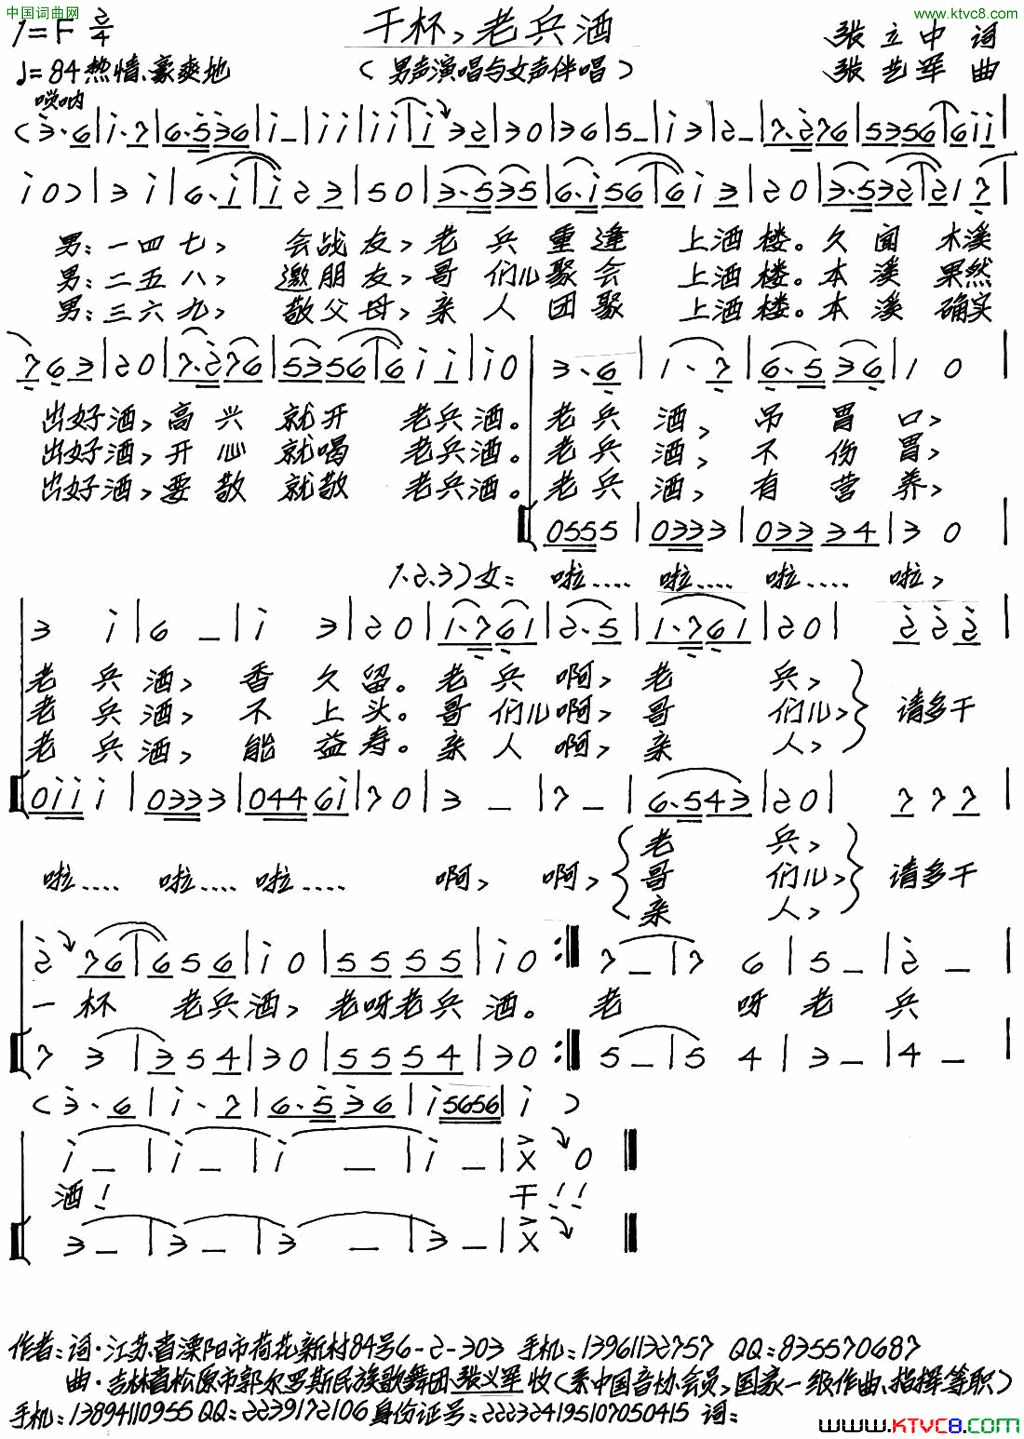 中国词曲网
www.ktvc8.com
1=F 2/4
干杯,老兵酒
张立中 词
♩=84 热情、豪爽地
(男声演唱与女声伴唱)
张艺军 曲
唢呐
(3·6|1·7|6·536|1-|11|11|1 32|30|36|5-|13|2-|7·276|5356|611|
10)|31|6·1|1123|50|3·535|6·156|613|20|3·532|217|
男:一四七, 会战友,老兵重逢 上酒楼。久闻 本溪
男:二五八, 邀朋友,哥们儿聚会 上酒楼。本溪 果然
男:三六九, 敬父母,亲人团聚 上酒楼。本溪 确实
763|20|7·276|5356|611|10|3·6|1·7|6·536|10|
出好酒,高兴就开 老兵酒。老兵酒,吊胃口,
出好酒,开心就喝 老兵酒。老兵酒,不伤胃,
出好酒,要敬就敬 老兵酒。老兵酒,有营养,
0555|0333|033 34|30|
1.2.3)女: 啦…… 啦…… 啦…… 啦,
31|6-|13|20|1·761|2·5|1·761|20|222|
老兵酒,香久留。老兵啊,老兵,请多干
老兵酒,不上头。哥们儿啊,哥们儿,
老兵酒,能益寿。亲人啊,亲人,
0111|0333|04461|70|3-|7-|6·543|20|777|
老兵,
啦…… 啦…… 啦…… 啊,啊,哥们儿,请多干
亲人,
2 76|656|10|5555|10:‖7-|76|5-|2-|
一杯 老兵酒,老呀老兵酒。老呀老兵
73|354|30|5554|30:‖5-|54|3-|4-|
(3·6|1·7|6·536|15656|1)
1-|1-|1-|1-|X0‖
酒! 干!!
3-|3-|3-|3-|X‖
作者:词·江苏省溧阳市荷花新村84号6-2-303 手机:13961132757 QQ=835570687
曲·吉林省松原市郭尔罗斯民族歌舞团张义军收(系中国音协会员,国家一级作曲、指挥等职)
手机:13894110955 QQ:2239172106 身份证号:222324195107050415 词:
www.KTVC8.com